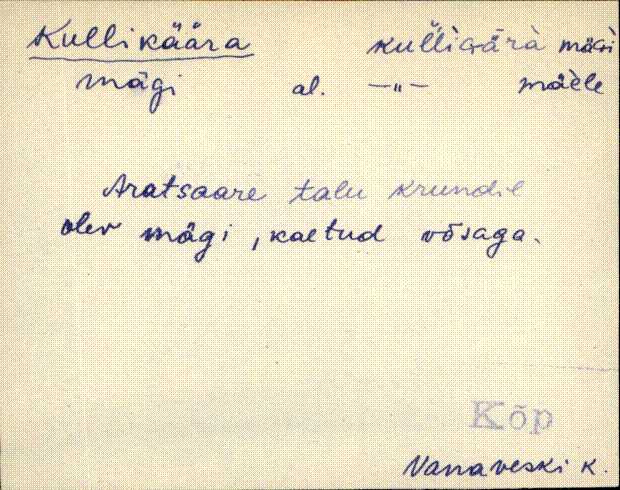 Kullikäära kulliɢärà mäɢi
mägi al. —„— mäèle
Aratsaare talu krundil
olev mägi, kaetud võsaga.
Kõp
Vanaveski k.